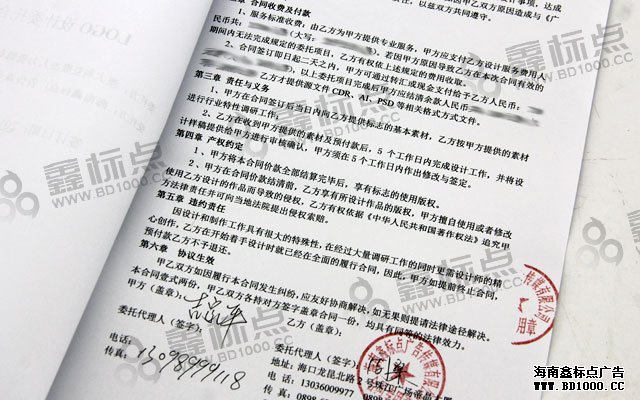 第二章 合同收费及付款
1、服务标准收费：由乙方为甲方提供专业服务，甲方应支付乙方设计服务费用人
民币共： （大写： ），若因甲方原因导致乙方在本次合同有效的
期间内无法完成规定的委托项目，乙方有权依上述规定的费用收取。
2、合同签订即日起二天之内，甲方可通过转汇或现金支付给予乙方人民币：
，以上委托项目完成后甲方应结清余款人民币
乙方才提供源文件 CDR、AI、PSD 等相关格式方式文件。
第三章 责任与义务
1、甲方在合同签订后当日内向乙方提供标志的基本素材，乙方按甲方提供的素材
进行行业特性调研工作；
2、乙方在收到甲方提供的素材及预付款后，5 个工作日内完成设计工作，并将设
计样稿提供给甲方进行审核确认，甲方须在 5 个工作日内作出修改与签定。
第四章 产权约定
1、甲方将本合同价款全部结算完毕后，享有标志的使用版权。
2、甲方在合同价款结清前，乙方享有所设计作品的版权，甲方擅自使用或者修改
使用乙方设计的作品而导致的侵权，乙方有权依据《中华人民共和国著作权法》追究甲
方法律责任并可向当地法院提出侵权索赔。
第五章 违约责任
因设计和制作工作具有很大的特殊性，在经过大量调研工作的同时更需设计师的精
心创作，乙方在开始着手设计时就已经在全面的履行合同，因此，甲方如提前终止合同，
预付款乙方不予退还。
第六章 协议生效
甲乙双方如因履行本合同发生纠纷，应友好协商解决，如无果则提请法律途径解决。
本合同壹式两份，甲乙双方各持对方签字盖章合同一份，均具有同等的法律效力。
甲方（盖章）： 乙方（盖章）：
委托代理人（签字）： 委托代理人（签字）：
地址：海口龙昆北路 2 号珠江广场帝晶大厦
电话： 电话：13036009977
传真：13098999118 传真：0898
传媒有限公司
用章
鑫标点广告传媒有限
鑫标点
WWW.BD1000.CC
海南鑫标点广告
WWW.BD1000.COM